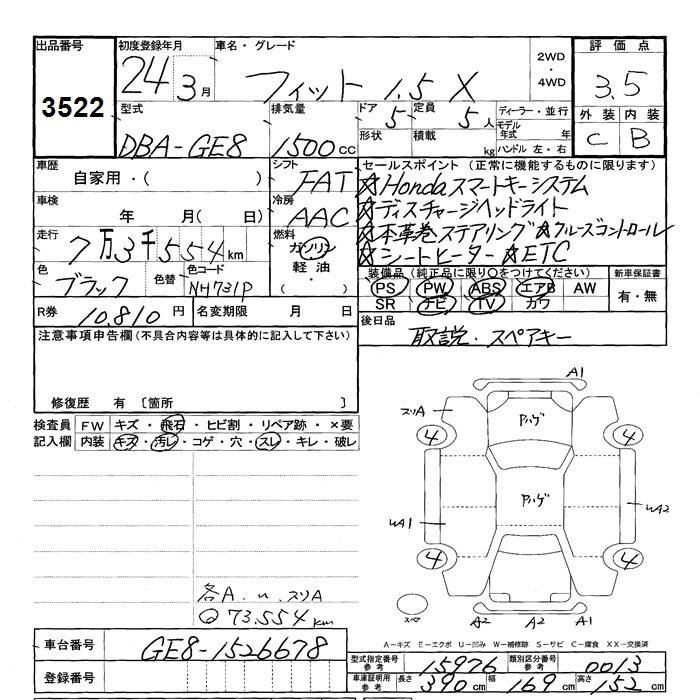 出品番号 初度登録年月 車名・グレード 2WD・4WD 評価点
3522 24 3月 フィット 1.5 X 3.5
型式 排気量 ドア 5 定員 5人 ディーラー・並行 外装 内装
DBA-GE8 1500cc 形状 積載 kg モデル年式 年 ハンドル 左・右 C B
車歴 シフト セールスポイント (正常に機能するものに限ります)
自家用・( ) FAT ☆Hondaスマートキーシステム
車検 冷房 ☆ディスチャージヘッドライト
年 月( 日) AAC ☆本革巻ステアリング☆クルーズコントロール
走行 燃料 ☆シートヒーター ☆ETC
7万3千554km ガソリン・軽油・( )
色 色替 色コード 装備品 (純正品に限り○をつけてください) 新車保証書
ブラック NH731P PS PW ABS エアB AW 有・無
SR ナビ TV カワ
R券 10,810円 名変期限 月 日 後日品
取説・スペアキー
注意事項申告欄(不具合内容等は具体的に記入して下さい)
修復歴 有 [箇所 ]
検査員 FW キズ・飛石・ヒビ割・リペア跡・×要
記入欄 内装 キズ・汚レ・コゲ・穴・スレ・キレ・破レ
A1
スリA
アハゲ
4 4
アハゲ
UA1 UA2
4 4
スペア A2 A2 A1
各A.u.スリA
73,554km
A−キズ E−エクボ U−凹み W−補修跡 S−サビ C−腐食 XX−交換済
車台番号 GE8-1526678
登録番号
型式指定番号 参考 15976 類別区分番号 参考 0013
車庫証明用 参考 長さ 390cm 幅 169cm 高さ 152cm